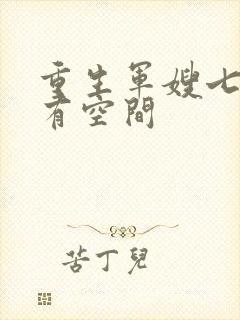 重生軍嫂七
有空間
苦丁兒